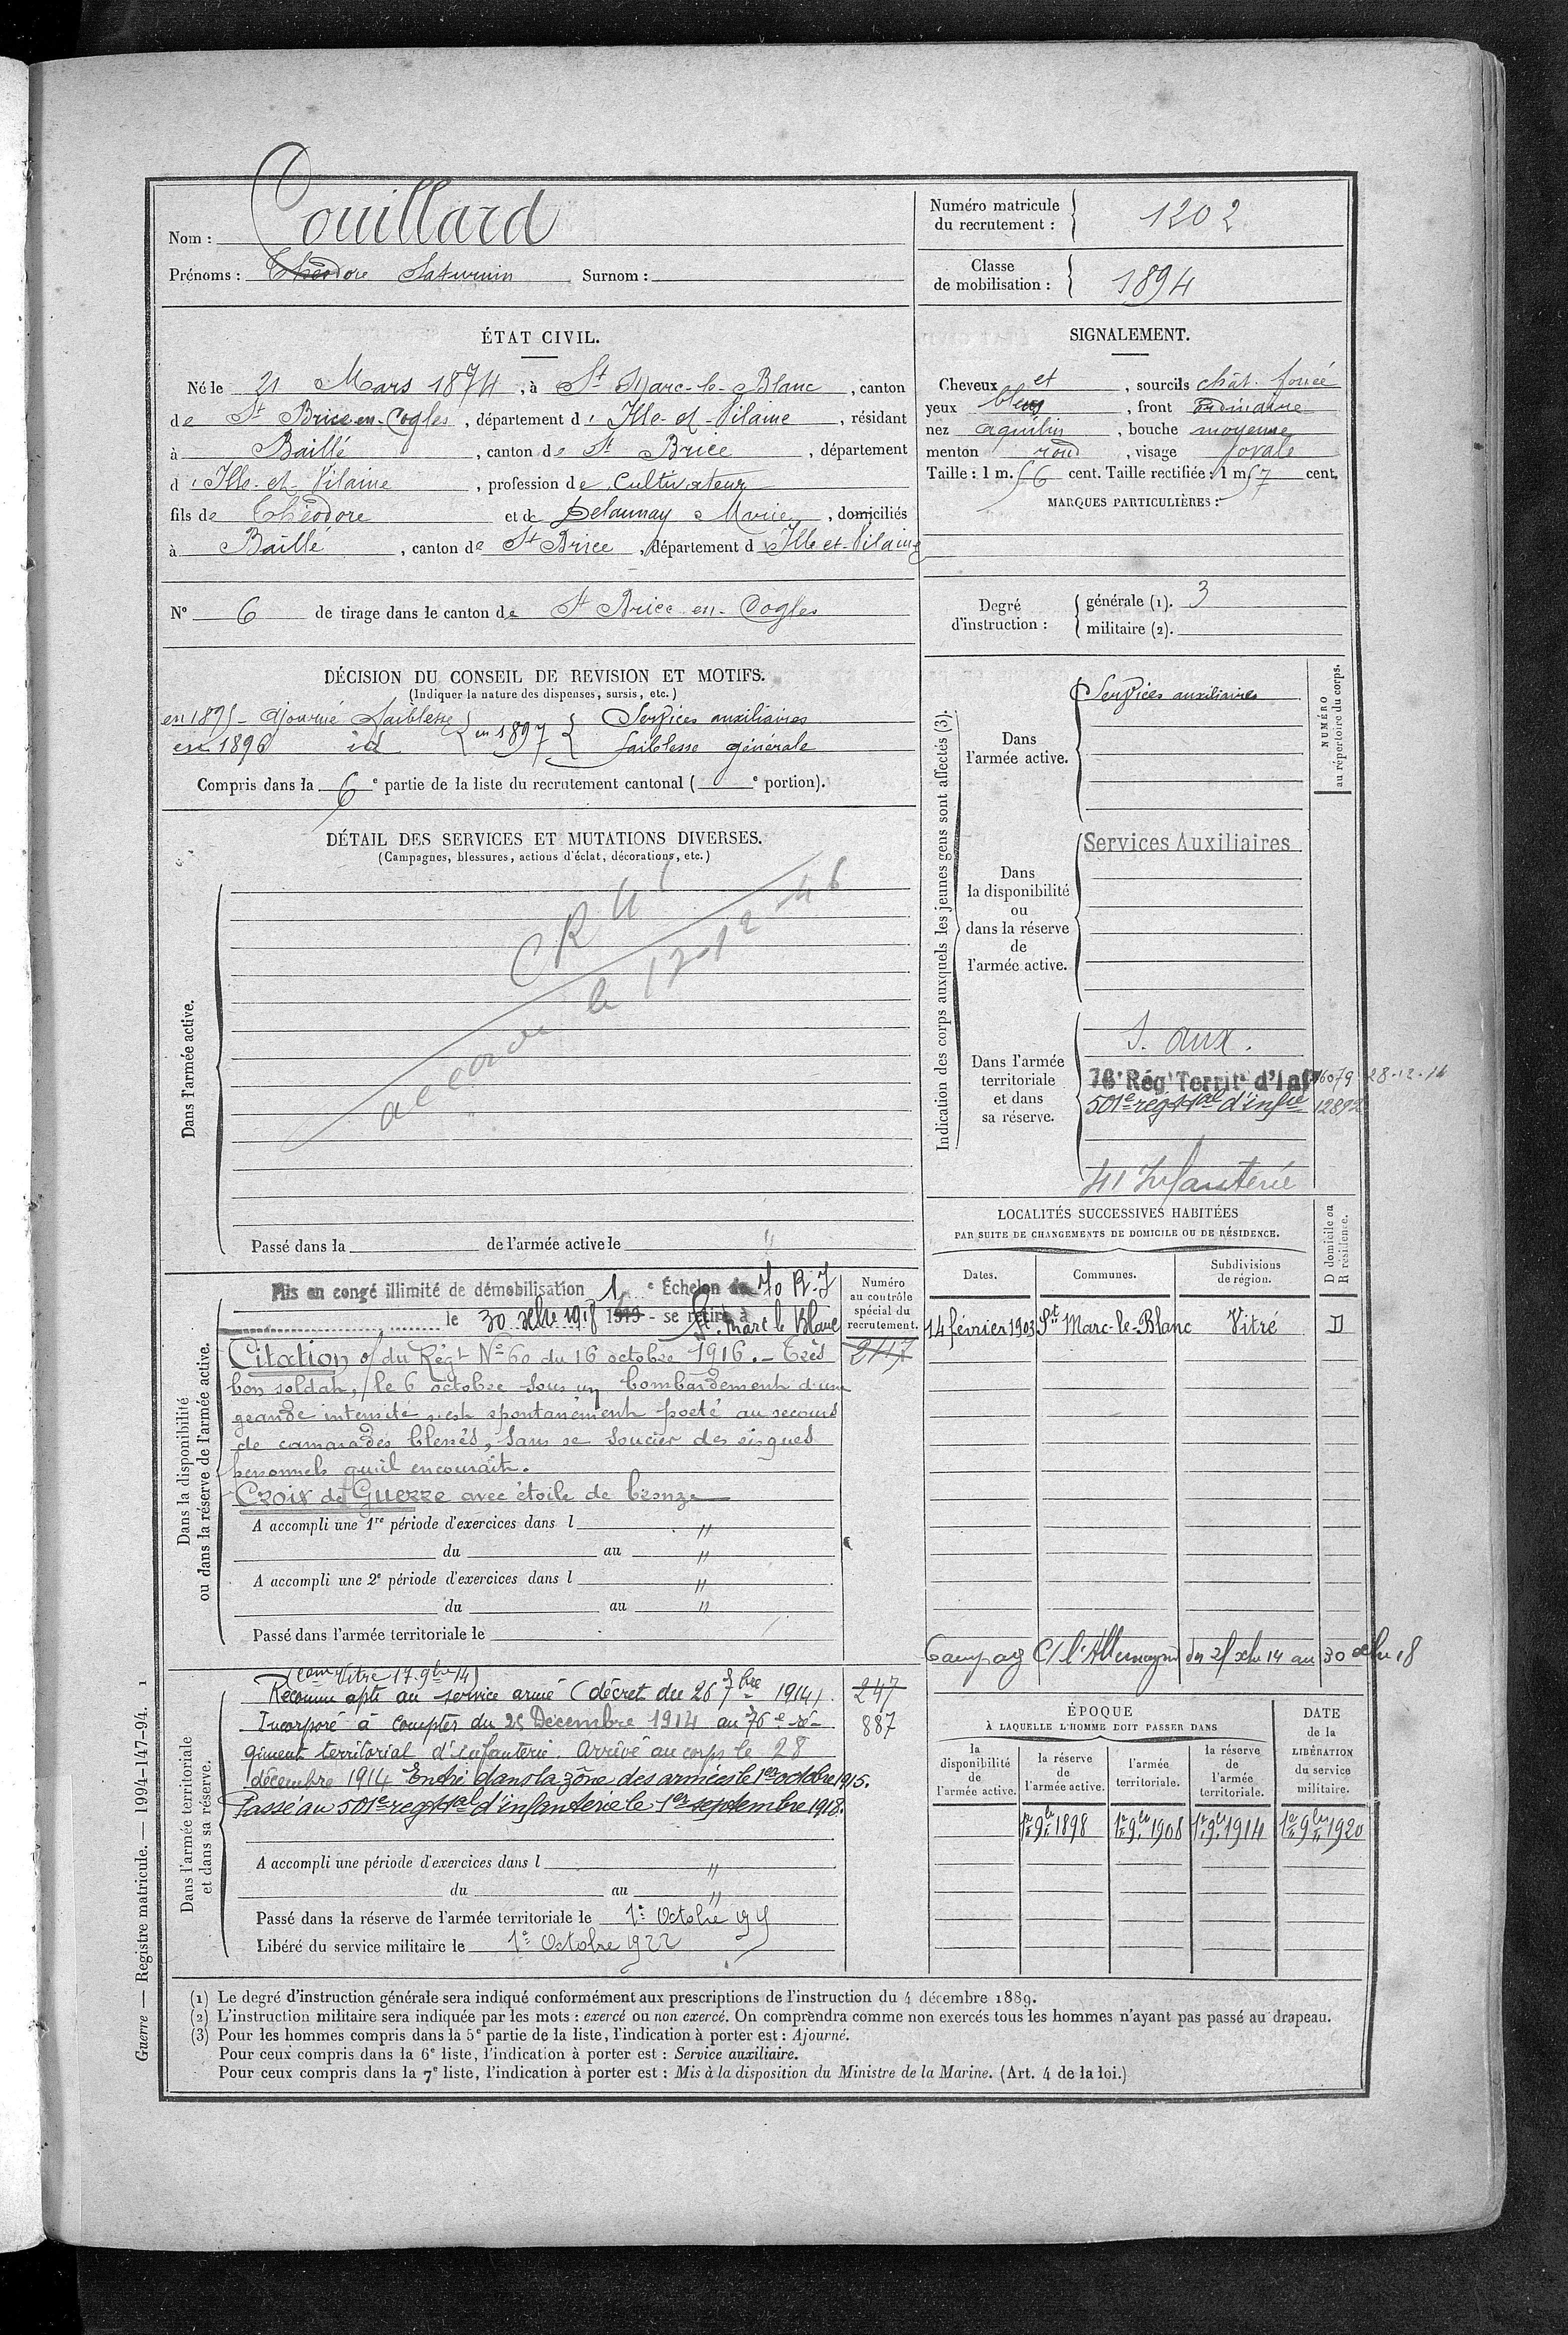 Nom : Couillard
Prénoms : Théodore Saturnin Surnom :
Numéro matricule du recrutement : 1202
Classe de mobilisation : 1894
ÉTAT CIVIL.
Né le 21 Mars 1874, à St Marc-le-Blanc, canton
de St Brice-en-Cogles, département d'Ille-et-Vilaine, résidant
à Baillé, canton de St Brice, département
d'Ille-et-Vilaine, profession de Cultivateur
fils de Théodore et de Delaunay Marie, domiciliés
à Baillé, canton de St Brice, département d'Ille-et-Vilaine
N° 6 de tirage dans le canton de St Brice-en-Cogles
SIGNALEMENT.
Cheveux et, sourcils chât. foncé
yeux bleus, front ordinaire
nez aquilin, bouche moyenne
menton rond, visage ovale
Taille : 1 m. 56 cent. Taille rectifiée : 1 m 57 cent.
MARQUES PARTICULIÈRES :
Degré d'instruction : générale (1). 3
militaire (2).
DÉCISION DU CONSEIL DE REVISION ET MOTIFS.
(Indiquer la nature des dispenses, sursis, etc.)
en 1895 - ajourné faiblesse } en 1897 { Services auxiliaires
en 1896 id faiblesse générale
Compris dans la 6e partie de la liste du recrutement cantonal ( e portion).
DÉTAIL DES SERVICES ET MUTATIONS DIVERSES.
(Campagnes, blessures, actions d'éclat, décorations, etc.)
Dans l'armée active.
C R
le 17-12-46
Passé dans la de l'armée active le "
Indication des corps auxquels les jeunes gens sont affectés (3).
NUMÉRO au répertoire du corps.
Dans l'armée active.
Services auxiliaires
Dans la disponibilité ou dans la réserve de l'armée active.
Services Auxiliaires
Dans l'armée territoriale et dans sa réserve.
S. aux.
76e Régt Territ. d'Inf 16079 28-12-14
501e régt tal d'infie 12892
41 Infanterie
Dans la disponibilité ou dans la réserve de l'armée active.
Numéro au contrôle spécial du recrutement.
Mis en congé illimité de démobilisation 1e Échelon 70 R.I
le 30 xbre 1918 1919 - se retire à St. Marc le Blanc
Citation o/ du Régt N° 60 du 16 octobre 1916. - Très 2117
bon soldat, le 6 octobre sous un bombardement d'une
grande intensité s'est spontanément porté au secours
de camarades blessés, sans se soucier des risques
personnels qu'il encourait.
Croix de Guerre avec étoile de bronze
A accompli une 1re période d'exercices dans l "
du au "
A accompli une 2e période d'exercices dans l "
du au "
Passé dans l'armée territoriale le
LOCALITÉS SUCCESSIVES HABITÉES
PAR SUITE DE CHANGEMENTS DE DOMICILE OU DE RÉSIDENCE.
Dates. Communes. Subdivisions de région. D domicile ou R résidence.
14 février 1903 St Marc-le-Blanc Vitré D
Campag C/ l'Allemagne du 25 xbre 14 au 30 xbre 18
Dans l'armée territoriale et dans sa réserve.
(Com Vitré 17. 9bre 14)
Reconnu apte au service armé (décret du 26 7bre 1914). 247
Incorporé à compter du 25 Décembre 1914 au 76e ré- 887
giment territorial d'infanterie. Arrivé au corps le 28
décembre 1914 Entré dans la zône des armées le 1er octobre 1915.
Passé au 501e regt tal d'infanterie le 1er septembre 1918.
A accompli une période d'exercices dans l "
du au "
Passé dans la réserve de l'armée territoriale le 1er Octobre 1915
Libéré du service militaire le 1er Octobre 1922
ÉPOQUE
À LAQUELLE L'HOMME DOIT PASSER DANS
la disponibilité de l'armée active. la réserve de l'armée active. l'armée territoriale. la réserve de l'armée territoriale.
DATE de la LIBÉRATION du service militaire.
1er 9bre 1898 1er 9bre 1908 1er 9bre 1914 1er 9bre 1920
(1) Le degré d'instruction générale sera indiqué conformément aux prescriptions de l'instruction du 4 décembre 1889.
(2) L'instruction militaire sera indiquée par les mots : exercé ou non exercé. On comprendra comme non exercés tous les hommes n'ayant pas passé au drapeau.
(3) Pour les hommes compris dans la 5e partie de la liste, l'indication à porter est : Ajourné.
Pour ceux compris dans la 6e liste, l'indication à porter est : Service auxiliaire.
Pour ceux compris dans la 7e liste, l'indication à porter est : Mis à la disposition du Ministre de la Marine. (Art. 4 de la loi.)
Guerre — Registre matricule. — 1994-147-94. 1